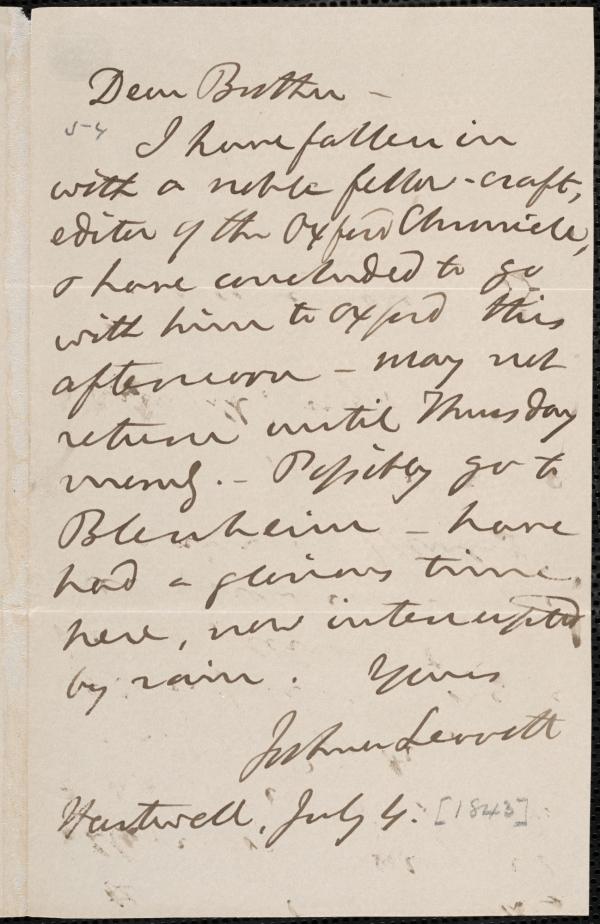 Dear Brother –
5-4
I have fallen in
with a noble fellow-craft,
editor of the Oxford Chronicle,
& have concluded to go
with him to Oxford this
afternoon – may not
return until Thursday
morng. – Possibly go to
Blenheim – have
had a glorious time
here, now interrupted
by rain. Yours
Joshua Leavitt
Hartwell, July 4. [1843]